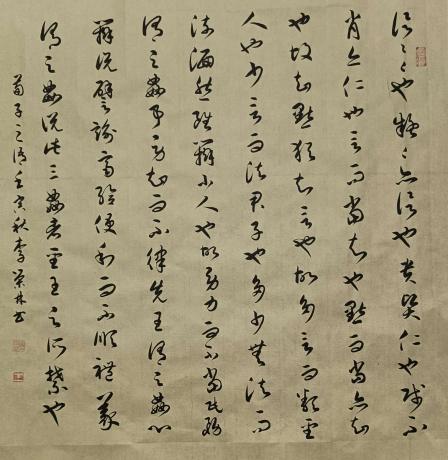 信〻也疑〻亦信也貴賢仁也賤不
肖亦仁也言而當知也默而當亦知
也故知默猶知言也故多言而類聖
人也少言而法君子也多少無法而
流湎然雖辯小人也故勞力而不當民務
謂之姦事勞知而不律先王謂之姦心
辯說譬諭齊給便利而不順禮義
謂之姦說此三姦者聖王之所禁也
荀子之 壬寅秋李 林书